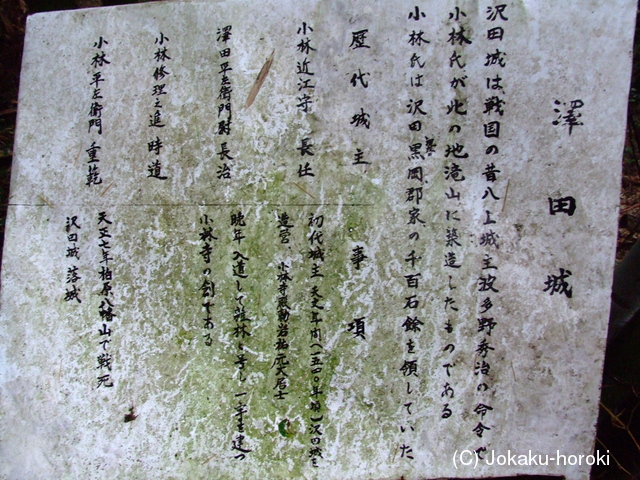 澤田城
沢田城は戦国の昔八上城主波多野秀治の命令で
小林氏が此の地滝山に築造したものである
小林氏は沢田黒岡郡家の千百石餘を領していた
歴代城主 事項
小林近江守 長任
初代城主 天文年間(一五四〇年頃)沢田城を
造営 小林寺殿勤岩祐元大居士
澤田平左衛門尉 長治
晩年 入道して 林と号し 一寺を建つ
小林寺の創である
小林修理之進 時直
小林平左衛門 重範
天正七年柏原八幡山で戦死
沢田城落城
(C) Jokaku-horoki